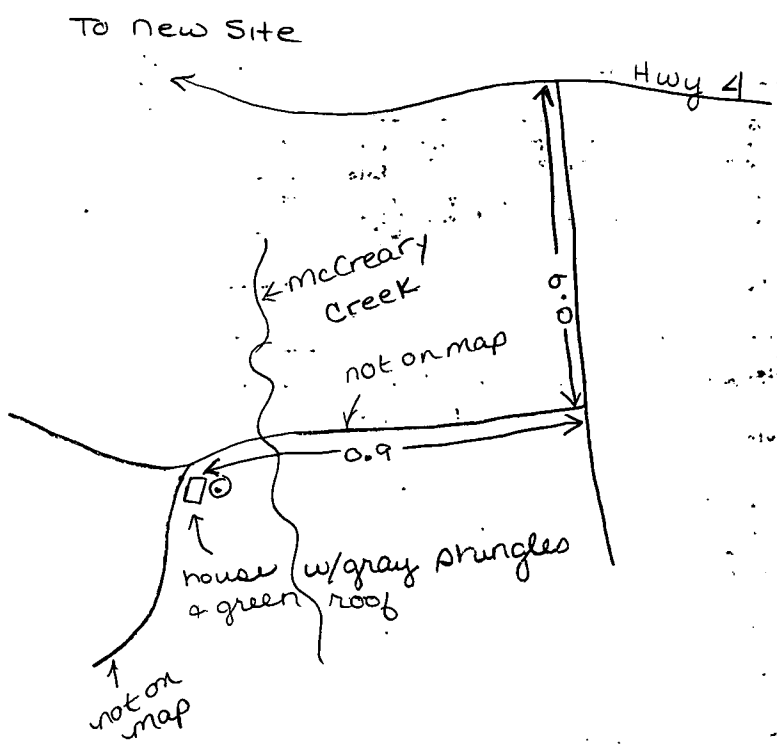 To new Site
Hwy 4
McCreary
Creek
0.9
not on map
0.9
house w/gray shingles
& green roof
not on
map